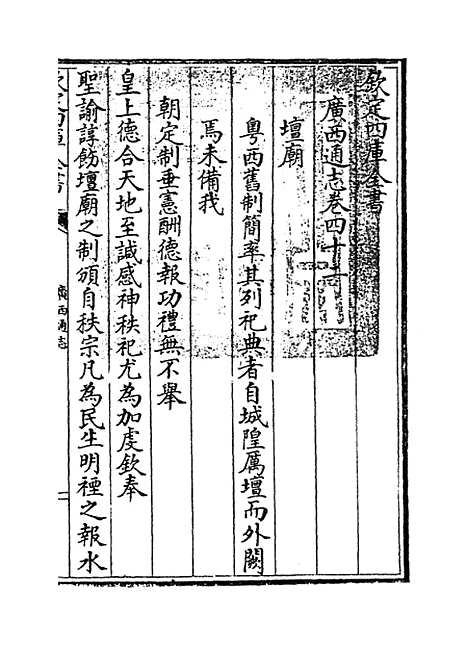 欽定四庫全書
廣西通志卷四十二
壇廟
粵西舊制簡率其列祀典者自城隍厲壇而外闕
焉未備我
朝定制垂憲酬德報功禮無不舉
皇上德合天地至誠感神秩祀尤為加虔欽奉
聖諭諄飭壇廟之制頒自秩宗凡為民生明禋之報水
欽定四庫全書
廣西通志
一